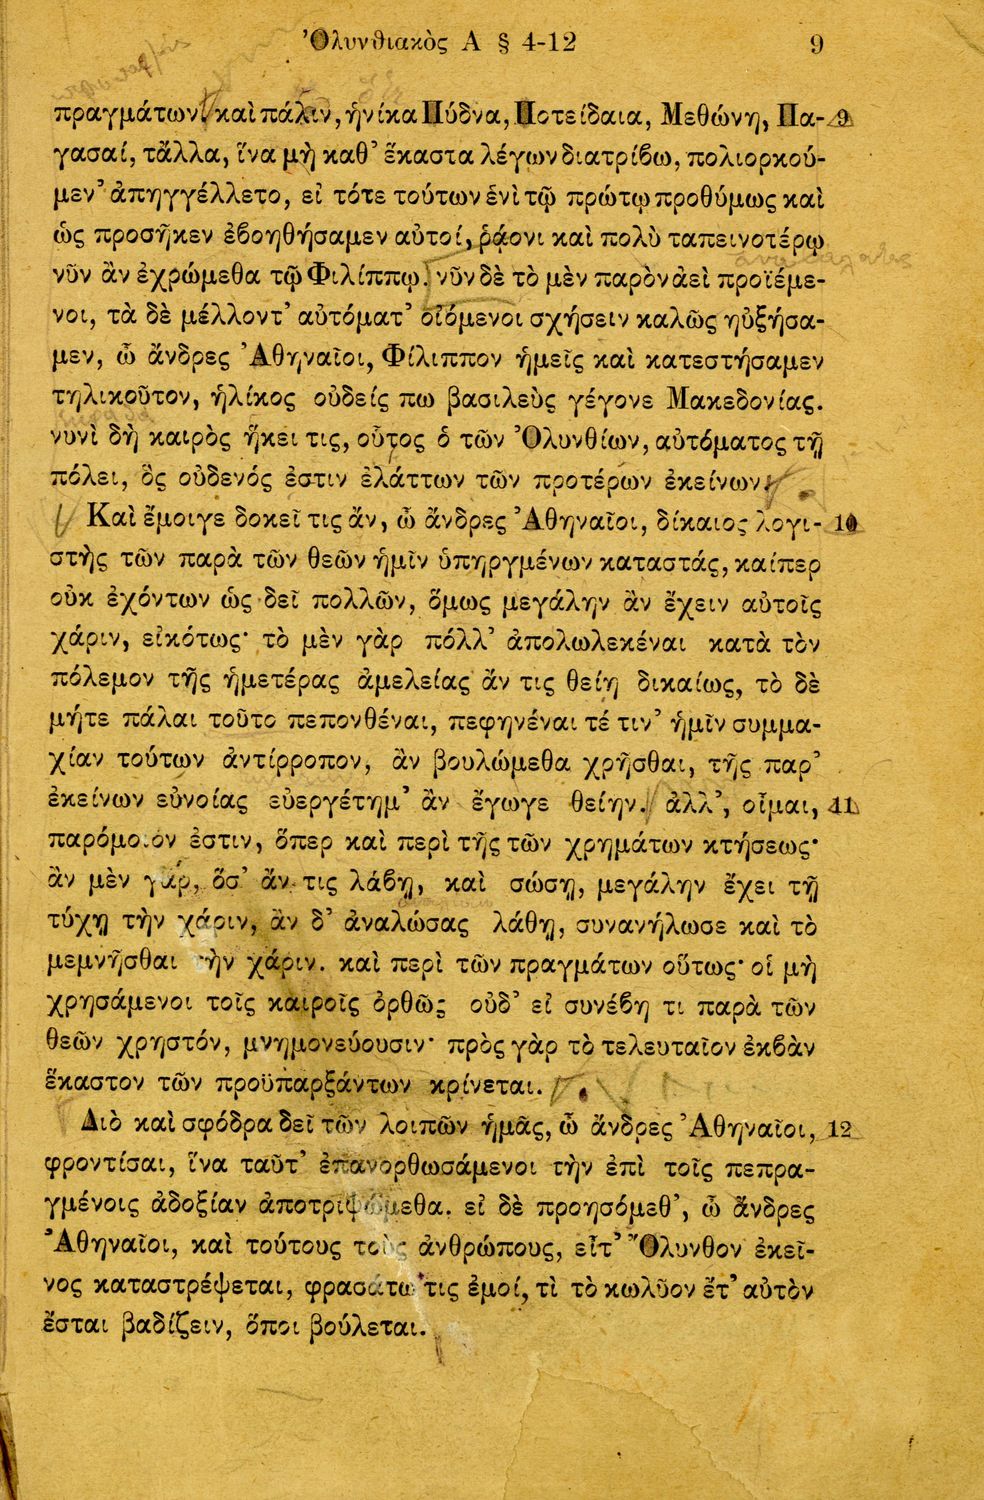 Ὀλυνθιακὸς Α § 4-12 9
πραγμάτων. καὶ πάλιν, ἡνίκα Πύδνα, Ποτείδαια, Μεθώνη, Πα- 9
γασαί, τἄλλα, ἵνα μὴ καθ' ἕκαστα λέγων διατρίβω, πολιορκού-
μεν' ἀπηγγέλλετο, εἰ τότε τούτων ἑνὶ τῷ πρώτῳ προθύμως καὶ
ὡς προσῆκεν ἐβοηθήσαμεν αὐτοί, ῥᾴονι καὶ πολὺ ταπεινοτέρῳ
νῦν ἂν ἐχρώμεθα τῷ Φιλίππῳ. νῦν δὲ τὸ μὲν παρὸν ἀεὶ προϊέμε-
νοι, τὰ δὲ μέλλοντ' αὐτόματ' οἰόμενοι σχήσειν καλῶς ηὐξήσα-
μεν, ὦ ἄνδρες Ἀθηναῖοι, Φίλιππον ἡμεῖς καὶ κατεστήσαμεν
τηλικοῦτον, ἡλίκος οὐδείς πω βασιλεὺς γέγονε Μακεδονίας.
νυνὶ δὴ καιρὸς ἥκει τις, οὗτος ὁ τῶν Ὀλυνθίων, αὐτόματος τῇ
πόλει, ὃς οὐδενός ἐστιν ἐλάττων τῶν προτέρων ἐκείνων.
Καὶ ἔμοιγε δοκεῖ τις ἄν, ὦ ἄνδρες Ἀθηναῖοι, δίκαιος λογι- 10
στὴς τῶν παρὰ τῶν θεῶν ἡμῖν ὑπηργμένων καταστάς, καίπερ
οὐκ ἐχόντων ὡς δεῖ πολλῶν, ὅμως μεγάλην ἂν ἔχειν αὐτοῖς
χάριν, εἰκότως· τὸ μὲν γὰρ πόλλ' ἀπολωλεκέναι κατὰ τὸν
πόλεμον τῆς ἡμετέρας ἀμελείας ἄν τις θείη δικαίως, τὸ δὲ
μήτε πάλαι τοῦτο πεπονθέναι, πεφηνέναι τέ τιν' ἡμῖν συμμα-
χίαν τούτων ἀντίρροπον, ἂν βουλώμεθα χρῆσθαι, τῆς παρ'
ἐκείνων εὐνοίας εὐεργέτημ' ἂν ἔγωγε θείην. ἀλλ', οἶμαι, 11
παρόμοιόν ἐστιν, ὅπερ καὶ περὶ τῆς τῶν χρημάτων κτήσεως·
ἂν μὲν γάρ, ὅσ' ἄν τις λάβῃ, καὶ σώσῃ, μεγάλην ἔχει τῇ
τύχῃ τὴν χάριν, ἂν δ' ἀναλώσας λάθῃ, συνανήλωσε καὶ τὸ
μεμνῆσθαι τὴν χάριν. καὶ περὶ τῶν πραγμάτων οὕτως· οἱ μὴ
χρησάμενοι τοῖς καιροῖς ὀρθῶς οὐδ' εἰ συνέβη τι παρὰ τῶν
θεῶν χρηστόν, μνημονεύουσιν· πρὸς γὰρ τὸ τελευταῖον ἐκβὰν
ἕκαστον τῶν προϋπαρξάντων κρίνεται.
Διὸ καὶ σφόδρα δεῖ τῶν λοιπῶν ἡμᾶς, ὦ ἄνδρες Ἀθηναῖοι, 12
φροντίσαι, ἵνα ταῦτ' ἐπανορθωσάμενοι τὴν ἐπὶ τοῖς πεπρα-
γμένοις ἀδοξίαν ἀποτριψώμεθα. εἰ δὲ προησόμεθ', ὦ ἄνδρες
Ἀθηναῖοι, καὶ τούτους τοὺς ἀνθρώπους, εἶτ' Ὄλυνθον ἐκεῖ-
νος καταστρέψεται, φρασάτω τις ἐμοί, τὶ τὸ κωλῦον ἔτ' αὐτὸν
ἔσται βαδίζειν, ὅποι βούλεται.